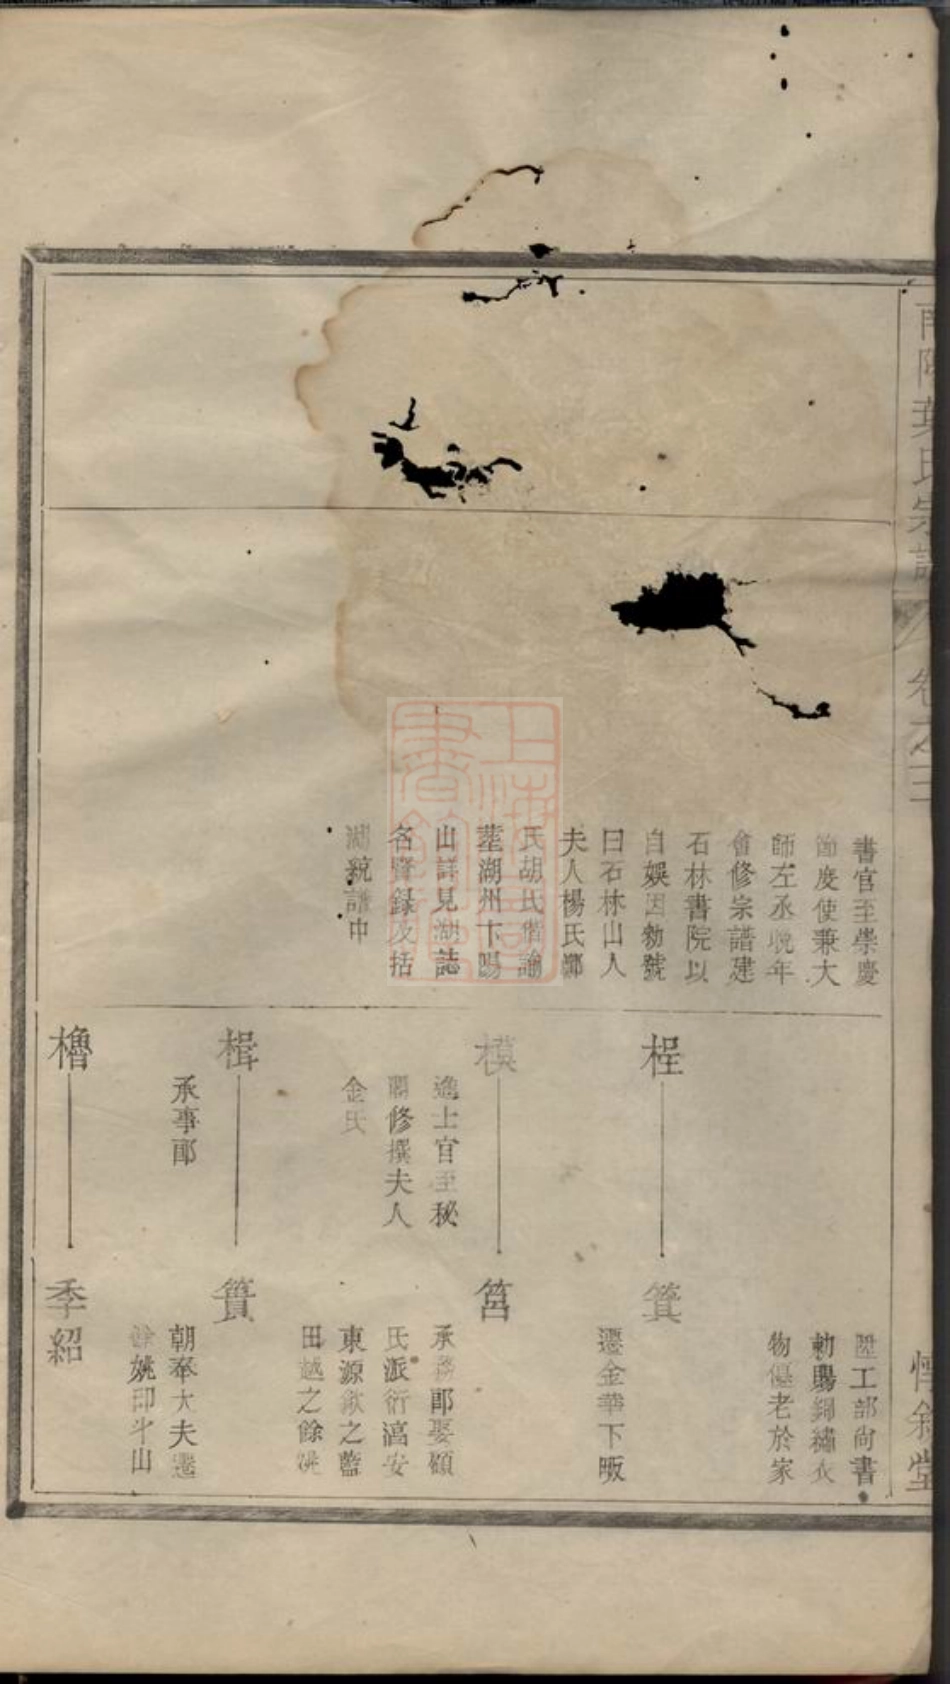 南陽葉氏宗譜
卷之三
惇叙堂
書官至崇慶
節度使兼大
師左丞晚年
會修宗譜建
石林書院以
自娛因勑號
曰石林山人
夫人楊氏
氏胡氏偕
塟湖州卞
山詳見湖誌
名賢錄及括
湖統譜中
桯
模
進士官至秘
閣修撰夫人
金氏
楫
承事郎
櫓
陞工部尚書
勅賜錦繡衣
物優老於家
箕
遷金華下畈
筥
承務郎娶碩
氏派衍髙安
東源歙之藍
田越之餘姚
簣
朝奉大夫遷
餘姚印斗山
季紹